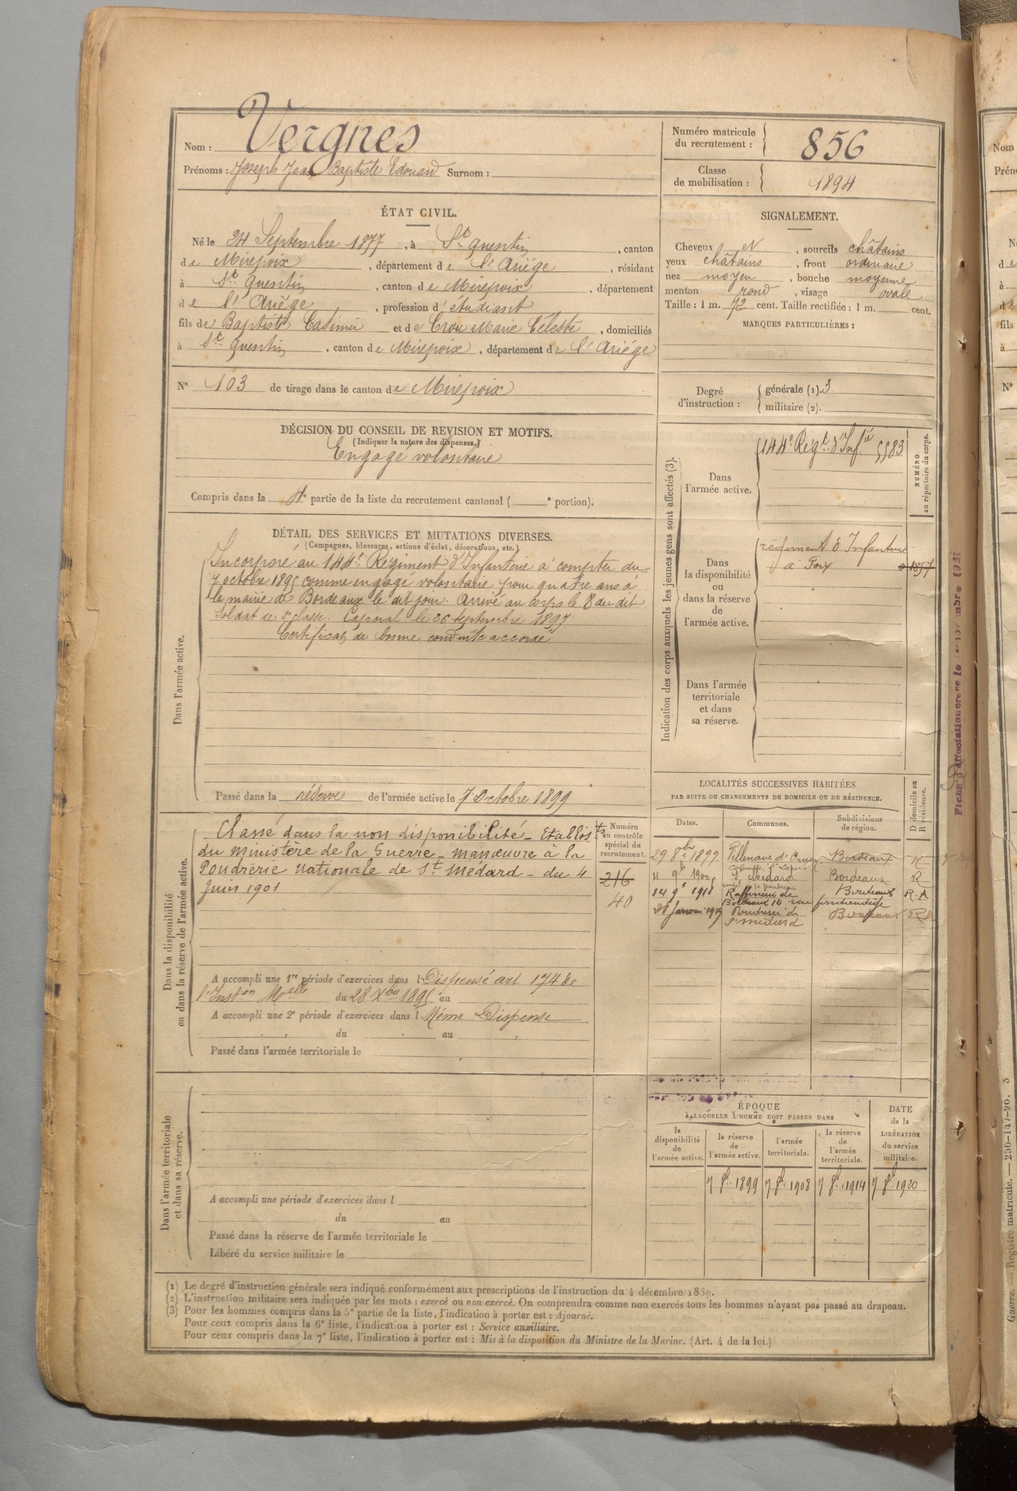 Nom : Vergnes
Prénoms : Joseph Jean Baptiste Edouard Surnom :
Numéro matricule du recrutement : 856
Classe de mobilisation : 1894
ÉTAT CIVIL.
Né le 24 Septembre 1877, à St Quentin, canton
de Mirepoix, département de l'Ariége, résidant
à St Quentin, canton de Mirepoix, département
de l'Ariége, profession d'étudiant
fils de Baptiste Casimir et de Marie Céleste, domiciliés
à St Quentin, canton de Mirepoix, département de l'Ariége
SIGNALEMENT.
Cheveux et, sourcils châtains
yeux châtains, front ordinaire
nez moyen, bouche moyenne
menton rond, visage ovale
Taille : 1 m. 72 cent. Taille rectifiée : 1 m. cent.
MARQUES PARTICULIÈRES :
N° 103 de tirage dans le canton de Mirepoix
Degré d'instruction : générale (1). 3
militaire (2).
DÉCISION DU CONSEIL DE REVISION ET MOTIFS.
(Indiquer la nature des dispenses.)
Engagé volontaire
Compris dans la partie de la liste du recrutement cantonal ( e portion).
Indication des corps auxquels les jeunes gens sont affectés (3).
NUMÉRO au répertoire du corps.
Dans l'armée active.
144e Regt. d'Infie 5583
Dans la disponibilité ou dans la réserve de l'armée active.
régiment d'Infanterie
à Foix
Dans l'armée territoriale et dans sa réserve.
DÉTAIL DES SERVICES ET MUTATIONS DIVERSES.
(Campagnes, blessures, actions d'éclat, décorations, etc.)
Dans l'armée active.
Incorporé au 144e Régiment d'Infanterie à compter du
7 octobre 1896 comme engagé volontaire pour quatre ans à
la mairie de Bordeaux le dit jour. Arrivé au corps le 8 du dit
Soldat de 2e classe. Caporal le 26 septembre 1897
Certificat de bonne conduite accordé
Passé dans la réserve de l'armée active le 7 Octobre 1899
LOCALITÉS SUCCESSIVES HABITÉES
PAR SUITE DE CHANGEMENTS DE DOMICILE OU DE RÉSIDENCE.
Dates. Communes. Subdivisions de région. D domicile ou R résidence.
29 8bre 1899 Villenave d'Ornon Bordeaux R
4 9bre 1900 St Médard Bordeaux R
14 9e 1918 Raffinerie de Bordeaux 14 rue Bordeaux R.A
28 janvier 1919 Poudrerie de St médard Bordeaux
Dans la disponibilité ou dans la réserve de l'armée active.
Numéro au contrôle spécial du recrutement.
216
40
Classé dans la non disponibilité - Etablissts
du ministère de la Guerre - manœuvre à la
Poudrerie Nationale de St Médard - du 4
juin 1901
A accompli une 1re période d'exercices dans l Dispensé art
l'Inston Melle du 28 Xbre 1895 au
A accompli une 2e période d'exercices dans l Même Dispense
du au
Passé dans l'armée territoriale le
Dans l'armée territoriale et dans sa réserve.
A accompli une période d'exercices dans l
du au
Passé dans la réserve de l'armée territoriale le
Libéré du service militaire le
ÉPOQUE
A LAQUELLE L'HOMME DOIT PASSER DANS
la disponibilité de l'armée active.
la réserve de l'armée active.
l'armée territoriale.
la réserve de l'armée territoriale.
DATE de la LIBÉRATION du service militaire.
7 8bre 1899 7 8bre 1908 7 8bre 1914 7 8bre 1920
(1) Le degré d'instruction générale sera indiqué conformément aux prescriptions de l'instruction du 4 décembre 1889.
(2) L'instruction militaire sera indiquée par les mots : exercé ou non exercé. On comprendra comme non exercés tous les hommes n'ayant pas passé au drapeau.
(3) Pour les hommes compris dans la 5e partie de la liste, l'indication à porter est : Ajourné.
Pour ceux compris dans la 6e liste, l'indication à porter est : Service auxiliaire.
Pour ceux compris dans la 7e liste, l'indication à porter est : Mis à la disposition du Ministre de la Marine. (Art. 4 de la loi.)
Guerre. — Registre matricule. — 256-147-96.